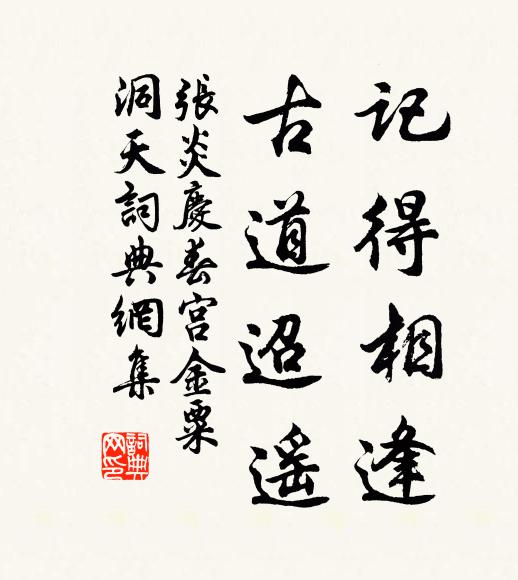 記得相逢
古道迢遥
張炎慶春宮金粟
洞天詞典網集
詞典网印